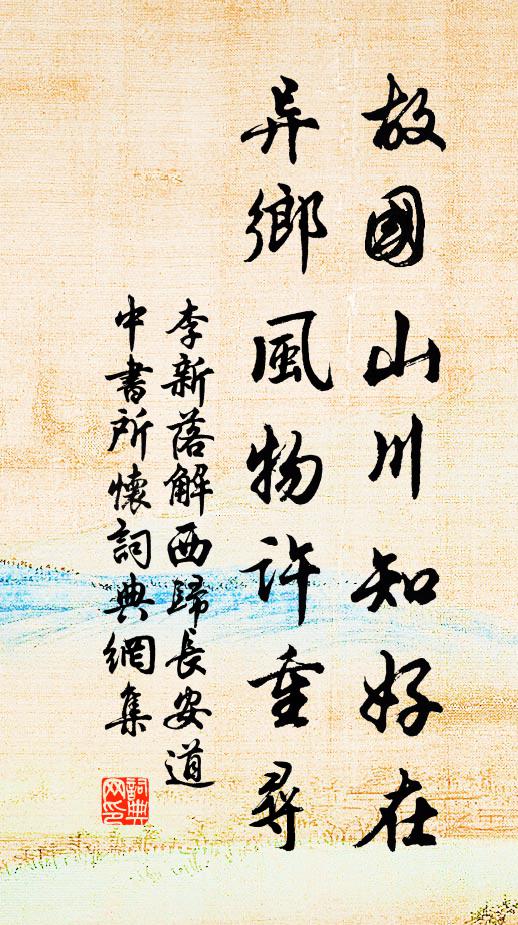 故國山川知好在
异鄉風物許重尋
李新落解西歸長安道
中書所懷詞典網集
詞典
网印